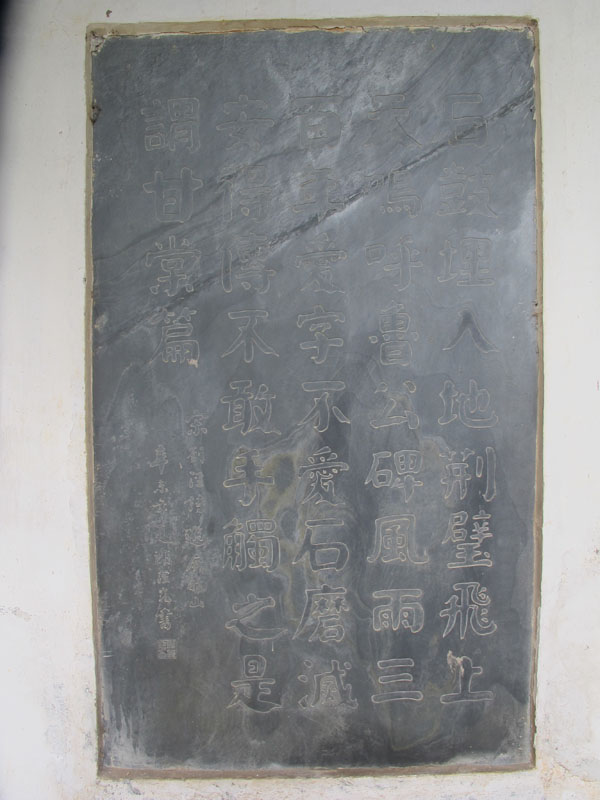 石鼓埋入地荆璧飛上
天嗚呼魯公碑風雨三
百年愛字不愛石磨滅
幸得傳不敢手觸之是
謂甘棠篇
辛未 書